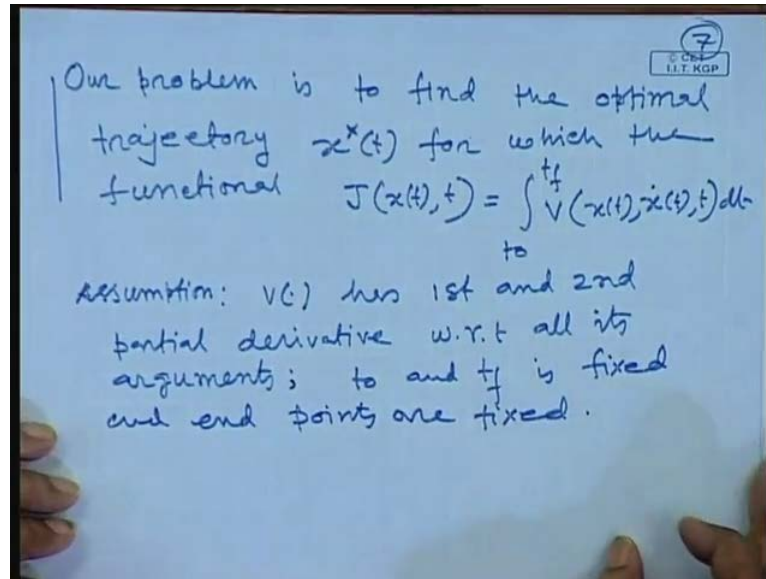 7
© CET
I.I.T. KGP
Our problem is to find the optimal
trajectory x*(t) for which the
functional J(x(t), t) = ∫_{t0}^{tf} V(x(t), ẋ(t), t) dt
Assumption: V(·) has 1st and 2nd
partial derivative w.r.t all its
arguments; to and tf is fixed
and end points are fixed.